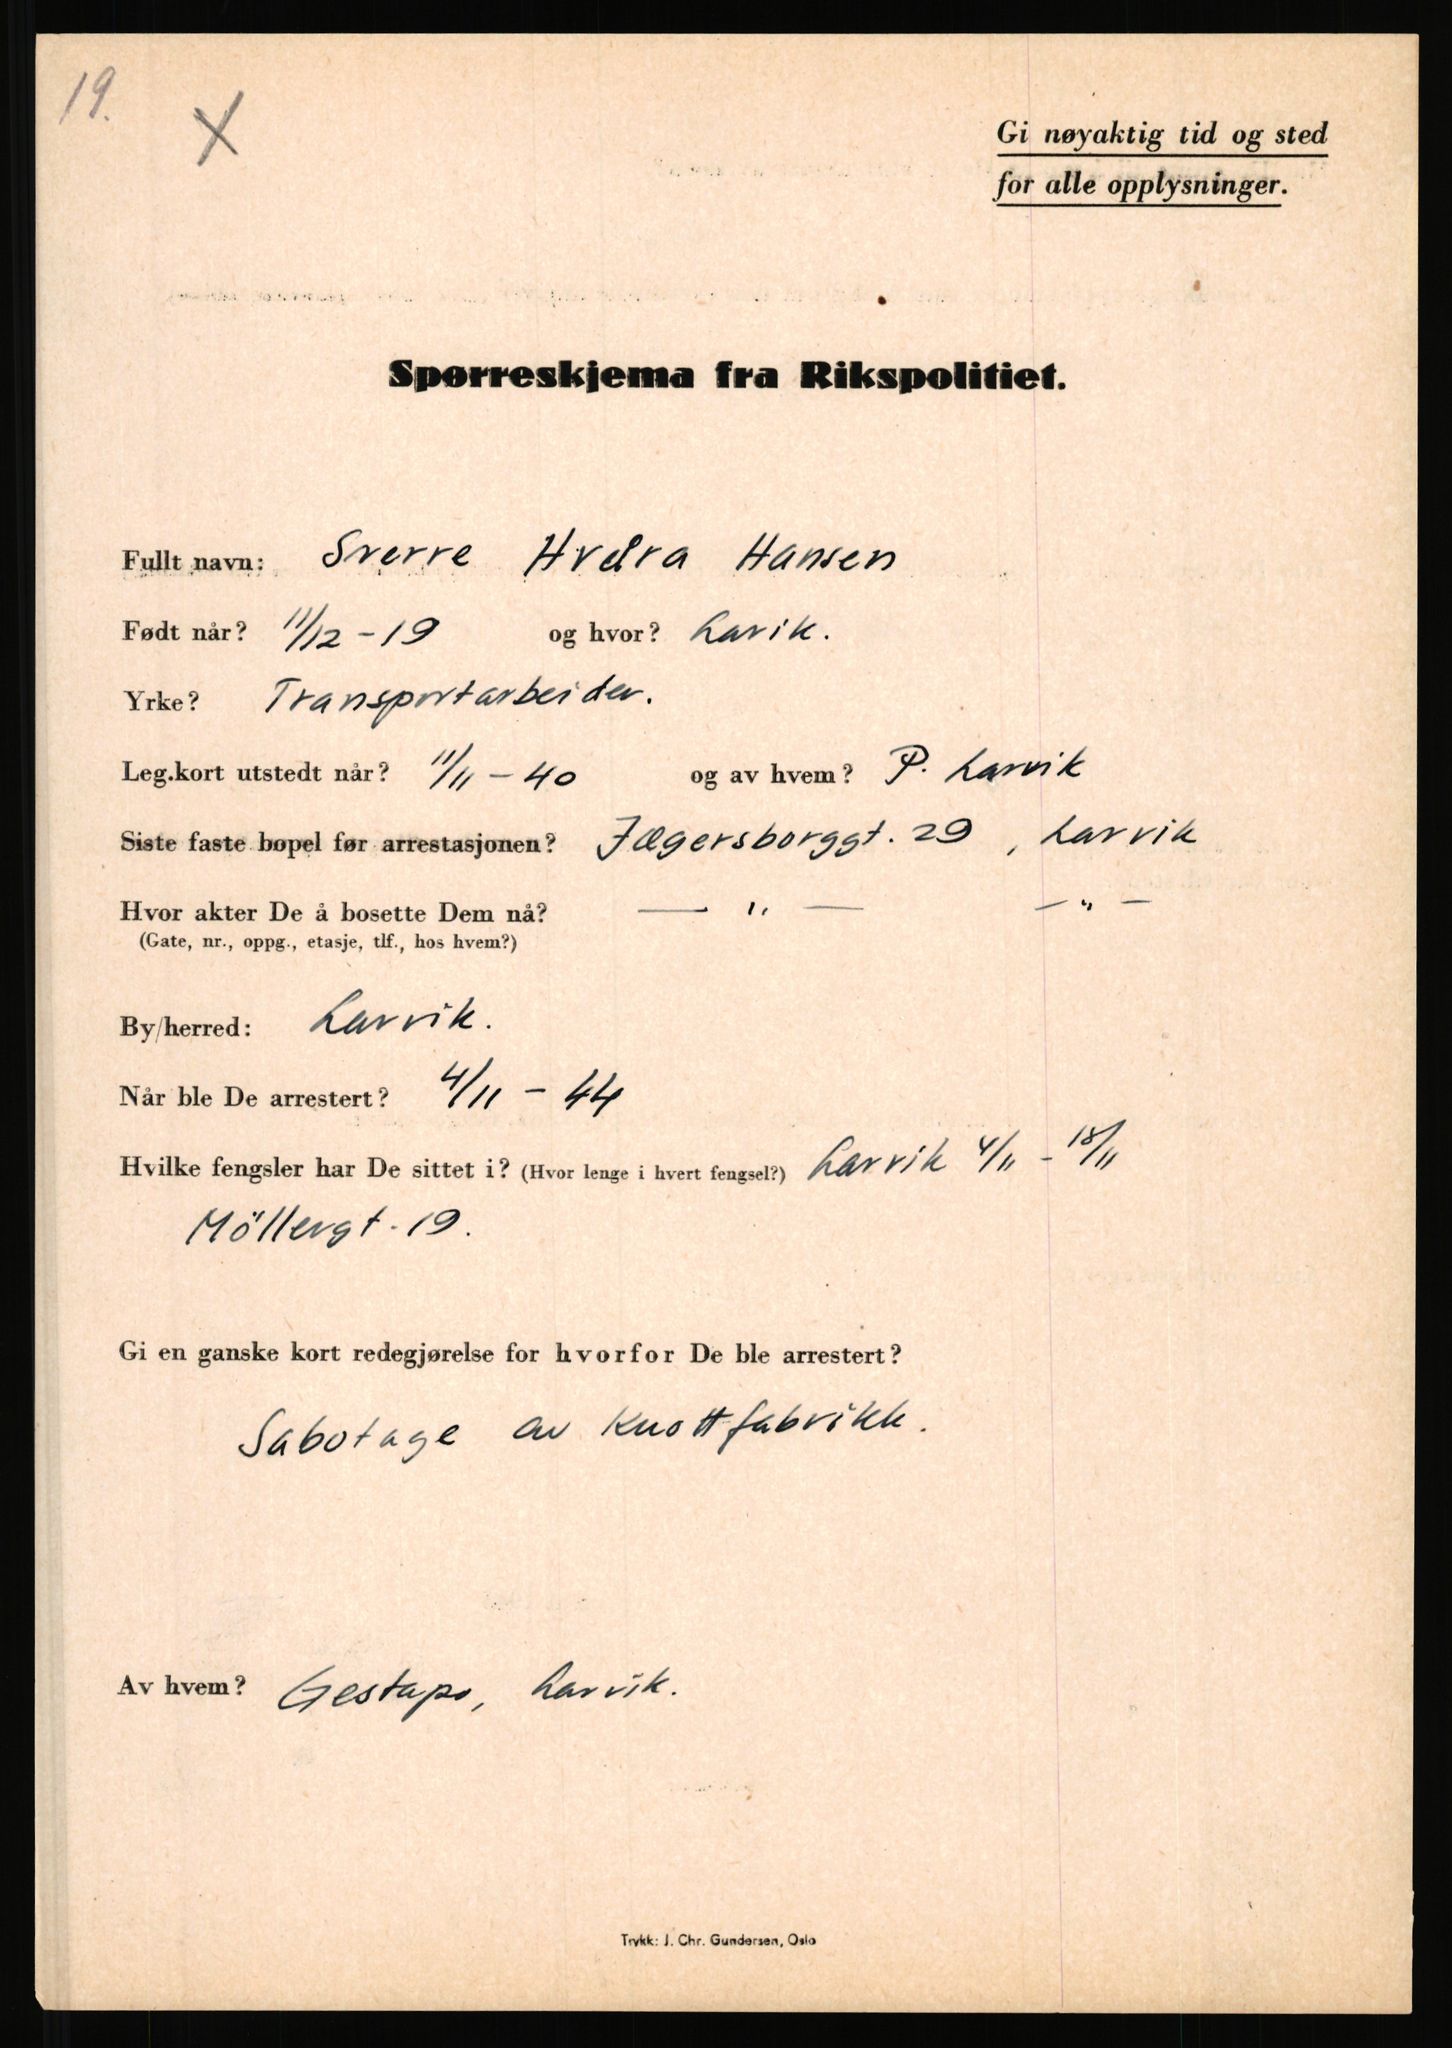 19.
X
Gi nøyaktig tid og sted
for alle opplysninger.
Spørreskjema fra Rikspolitiet.
Fullt navn: Sverre Hvdra Hansen
Født når? 11/12 - 19 og hvor? Larik.
Yrke? Transportarbeider.
Leg.kort utstedt når? 11/11 - 40 og av hvem? P. Larvik
Siste faste bopel før arrestasjonen? Jægersborggt. 29, Larvik
Hvor akter De å bosette Dem nå? — " — — " —
(Gate, nr., oppg., etasje, tlf., hos hvem?)
By/herred: Larvik.
Når ble De arrestert? 4/11 - 44
Hvilke fengsler har De sittet i? (Hvor lenge i hvert fengsel?) Larvik 4/11 - 18/11
Möllergt. 19.
Gi en ganske kort redegjørelse for hvorfor De ble arrestert?
Sabotage av Knottfabrikk.
Av hvem? Gestapo, Larvik.
Trykk: J. Chr. Gundersen, Oslo